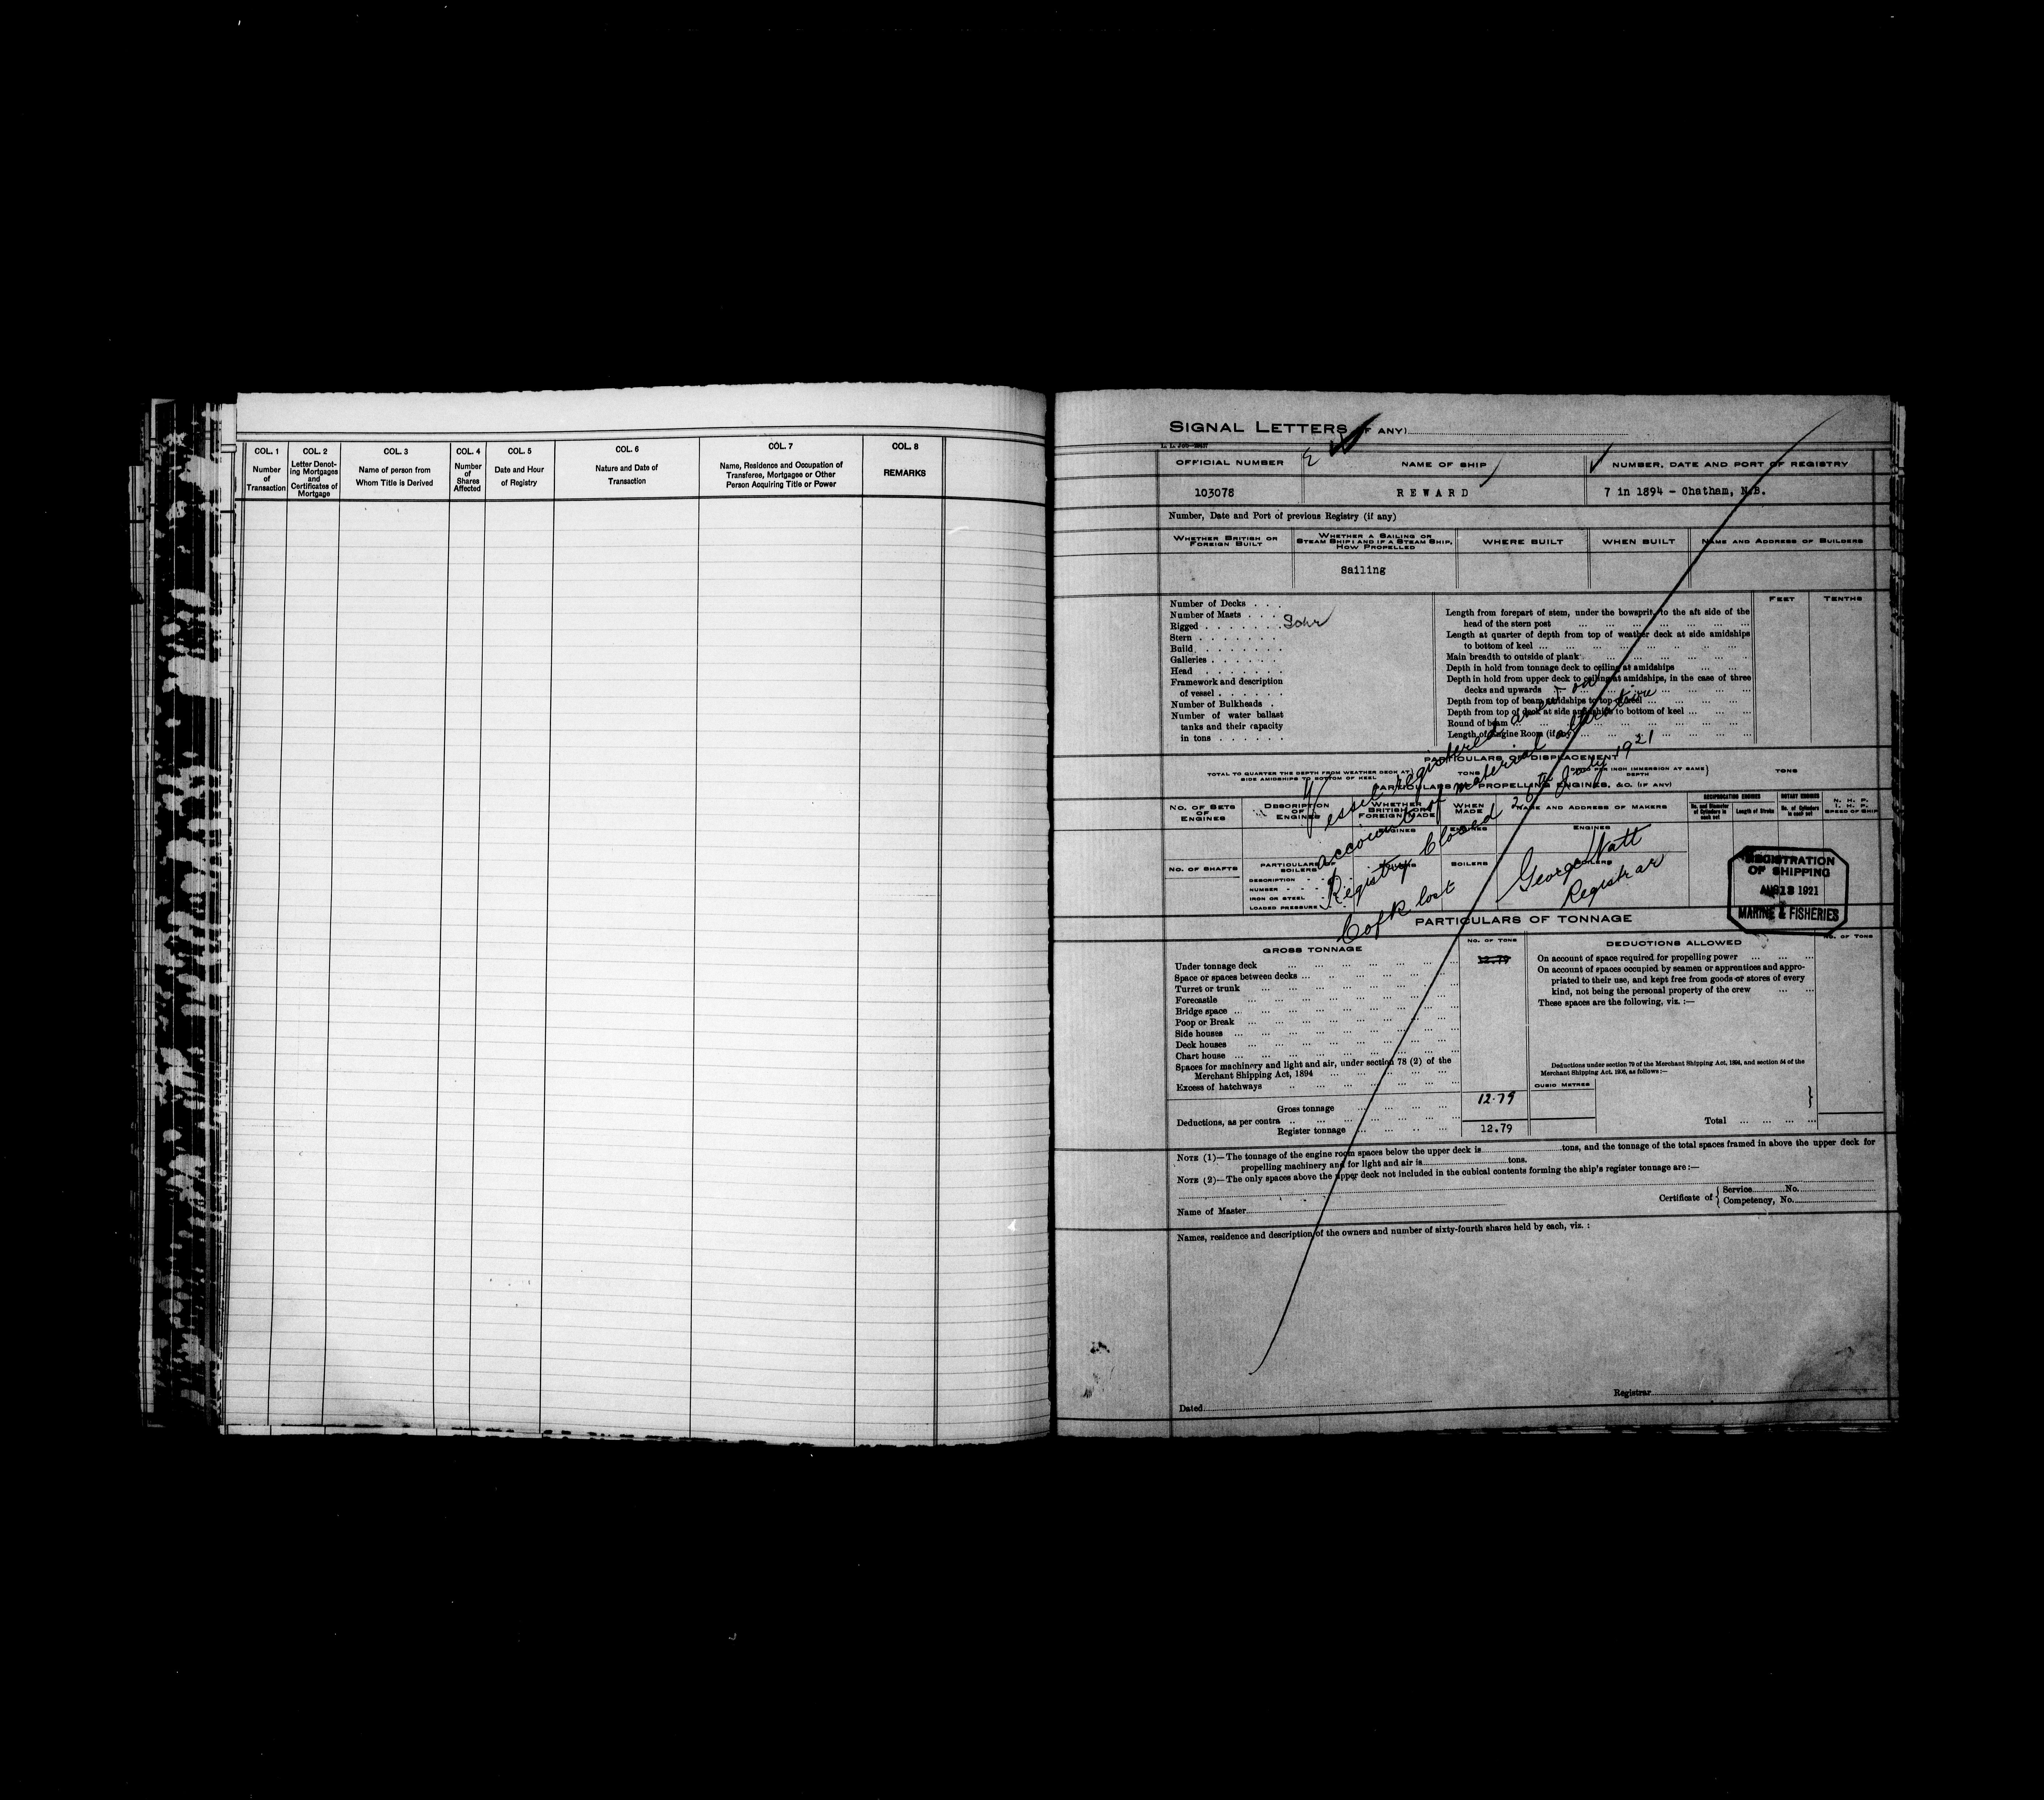 COL. 1
Number
of
Transaction
COL. 2
Letter Denot-
ing Mortgages
and
Certificates of
Mortgage
COL. 3
Name of person from
Whom Title is Derived
COL. 4
Number
of
Shares
Affected
COL. 5
Date and Hour
of Registry
COL. 6
Nature and Date of
Transaction
COL. 7
Name, Residence and Occupation of
Transferee, Mortgagee or Other
Person Acquiring Title or Power
COL. 8
REMARKS
SIGNAL LETTERS (IF ANY)
OFFICIAL NUMBER
NAME OF SHIP
NUMBER, DATE AND PORT OF REGISTRY
103078
REWARD
7 in 1894 - Chatham, N.B.
Number, Date and Port of previous Registry (if any)
WHETHER BRITISH OR
FOREIGN BUILT
WHETHER A SAILING OR
STEAM SHIP; AND IF A STEAM SHIP,
HOW PROPELLED
WHERE BUILT
WHEN BUILT
NAME AND ADDRESS OF BUILDERS
Sailing
FEET
TENTHS
Number of Decks
Number of Masts
Rigged Schr
Stern
Build
Galleries
Head
Framework and description
of vessel
Number of Bulkheads
Number of water ballast
tanks and their capacity
in tons
Length from forepart of stem, under the bowsprit, to the aft side of the
head of the stern post
Length at quarter of depth from top of weather deck at side amidships
to bottom of keel
Main breadth to outside of plank
Depth in hold from tonnage deck to ceiling at amidships
Depth in hold from upper deck to ceiling at amidships, in the case of three
decks and upwards
Depth from top of beam amidships to top of keel
Depth from top of deck at side amidships to bottom of keel
Round of beam
Length of Engine Room (if any)
PARTICULARS OF DISPLACEMENT
TOTAL TO QUARTER THE DEPTH FROM WEATHER DECK AT
SIDE AMIDSHIPS TO BOTTOM OF KEEL
TONS
DITTO PER INCH IMMERSION AT SAME
DEPTH
TONS
PARTICULARS OF PROPELLING ENGINES, &C. (IF ANY)
NO. OF SETS
OF
ENGINES
DESCRIPTION
OF
ENGINES
WHETHER
BRITISH OR
FOREIGN MADE
WHEN
MADE
NAME AND ADDRESS OF MAKERS
RECIPROCATING ENGINES
No. and Diameter
of Cylinders in
each set
Length of Stroke
ROTARY ENGINES
No. of Cylinders
in each set
N. H. P.
I. H. P.
SPEED OF SHIP
ENGINES
ENGINES
ENGINES
NO. OF SHAFTS
PARTICULARS OF
BOILERS
BOILERS
BOILERS
BOILERS
DESCRIPTION
NUMBER
IRON OR STEEL
LOADED PRESSURE
Vessel registered anew on
account of material alteration
Registry Closed 28th July 1921
C of R lost
George Watt
Registrar
REGISTRATION
OF SHIPPING
AUG 13 1921
MARINE & FISHERIES
PARTICULARS OF TONNAGE
GROSS TONNAGE
NO. OF TONS
DEDUCTIONS ALLOWED
NO. OF TONS
Under tonnage deck 12.79
Space or spaces between decks
Turret or trunk
Forecastle
Bridge space
Poop or Break
Side houses
Deck houses
Chart house
Spaces for machinery and light and air, under section 78 (2) of the
Merchant Shipping Act, 1894
Excess of hatchways
Gross tonnage 12.79
Deductions, as per contra
Register tonnage 12.79
On account of space required for propelling power
On account of spaces occupied by seamen or apprentices and appro-
priated to their use, and kept free from goods or stores of every
kind, not being the personal property of the crew
These spaces are the following, viz. :—
Deductions under section 79 of the Merchant Shipping Act, 1894, and section 54 of the
Merchant Shipping Act, 1906, as follows:—
CUBIC METRES
Total
NOTE (1)—The tonnage of the engine room spaces below the upper deck is tons, and the tonnage of the total spaces framed in above the upper deck for
propelling machinery and for light and air is tons.
NOTE (2)—The only spaces above the upper deck not included in the cubical contents forming the ship's register tonnage are :—
Name of Master
Certificate of { Service No.
Competency, No.
Names, residence and description of the owners and number of sixty-fourth shares held by each, viz. :
Registrar
Dated